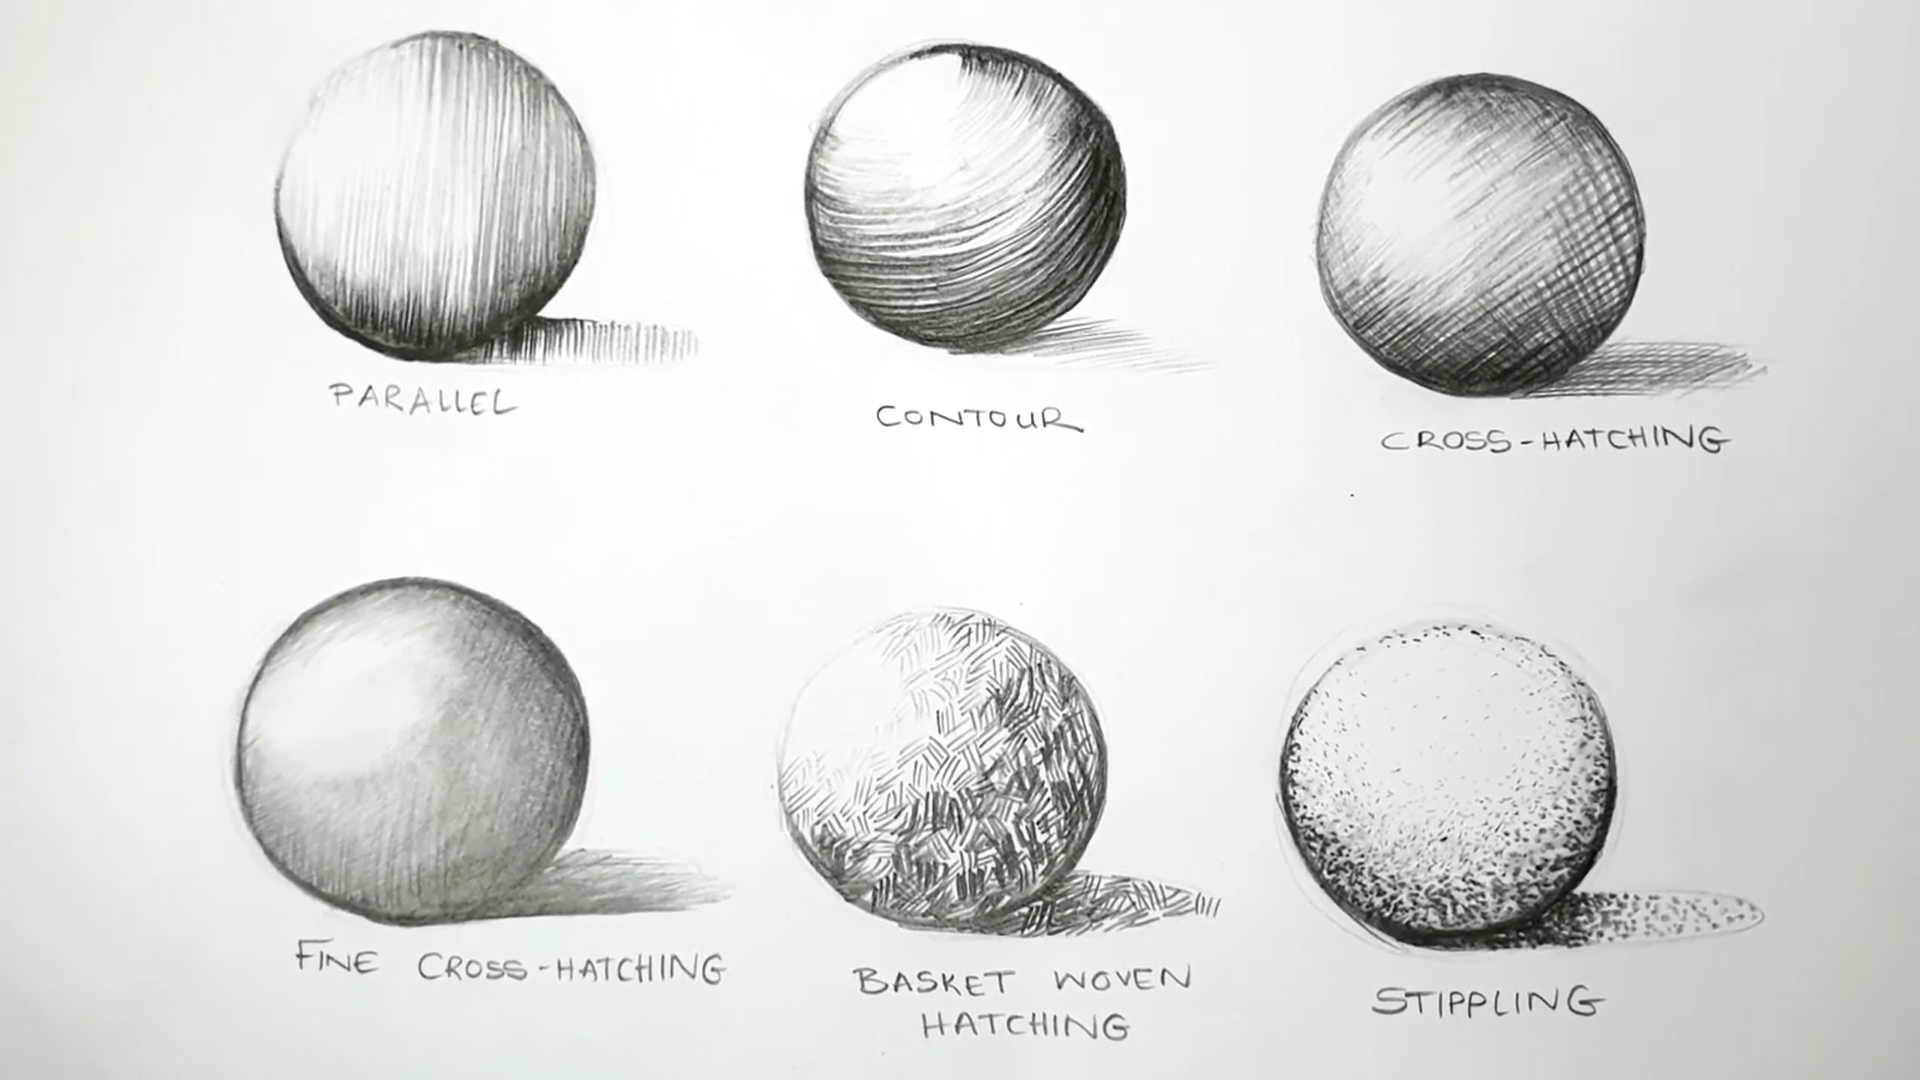 PARALLEL
CONTOUR
CROSS-HATCHING
FINE CROSS-HATCHING
BASKET WOVEN
HATCHING
STIPPLING